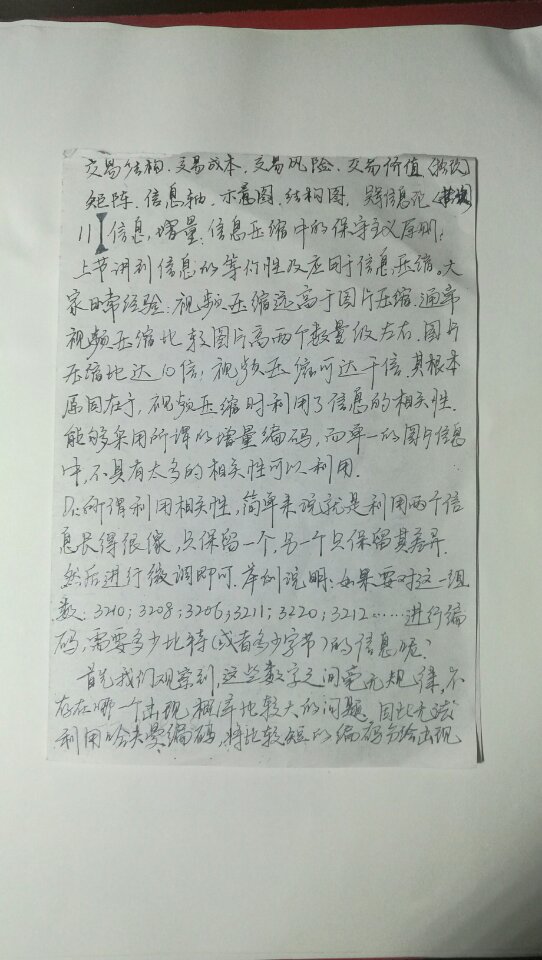 交易结构、交易成本、交易风险、交易价值
矩阵、信息轴、示意图、结构图,
11 信息,增量:信息压缩中的保守主义原则:
上节讲到信息的等价性及应用于信息压缩。大
家日常经验:视频压缩远高于图片压缩.通常
视频压缩比较图片高两个数量级左右.图片
压缩比达10倍,视频压缩可达千倍.其根本
原因在于,视频压缩时利用了信息的相关性.
能够采用所谓的增量编码,而单一的图片信息
中,不具有太多的相关性可以利用.
D:所谓利用相关性,简单来说就是利用两个信
息长得很像,只保留一个,另一个只保留其差异.
然后进行微调即可.举例说明:如果要对这一组
数:3210;3208;3206;3211;3220;3212……进行编
码,需要多少比特(或者多少字节)的信息呢?
首先我们观察到,这些数字之间毫无规律,不
存在哪一个出现概率比较大的问题,因此无法
利用哈夫曼编码,将比较短的编码分给出现